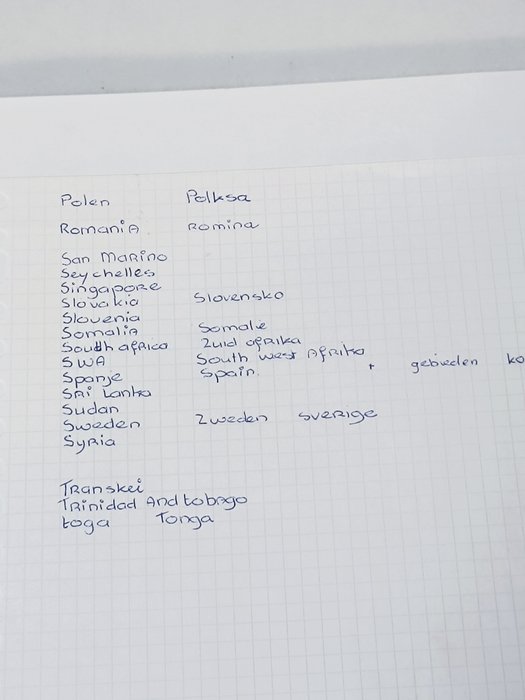 Polen Polksa
Romania Romina
San Marino
Seychelles
Singapore
Slovakia Slovensko
Slovenia
Somalia Somalie
South africa Zuid afrika
SWA South west Afrika + gebieden ko
Spanje Spain.
Sri Lanka
Sudan
Sweden Zweden sverige
Syria
Transkei
Trinidad And tobago
toga Tonga